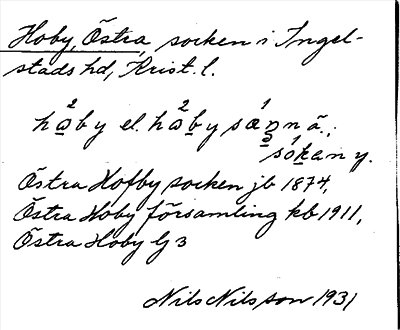 Hoby, Östra, socken i Ingel-
stads hd, Krist. l.
håby el. håby sənnä.;
sókany.
Östra Hofby socken jb 1874,
Östra Hoby församling kb 1911,
Östra Hoby lj 3
Nils Nilsson 1931